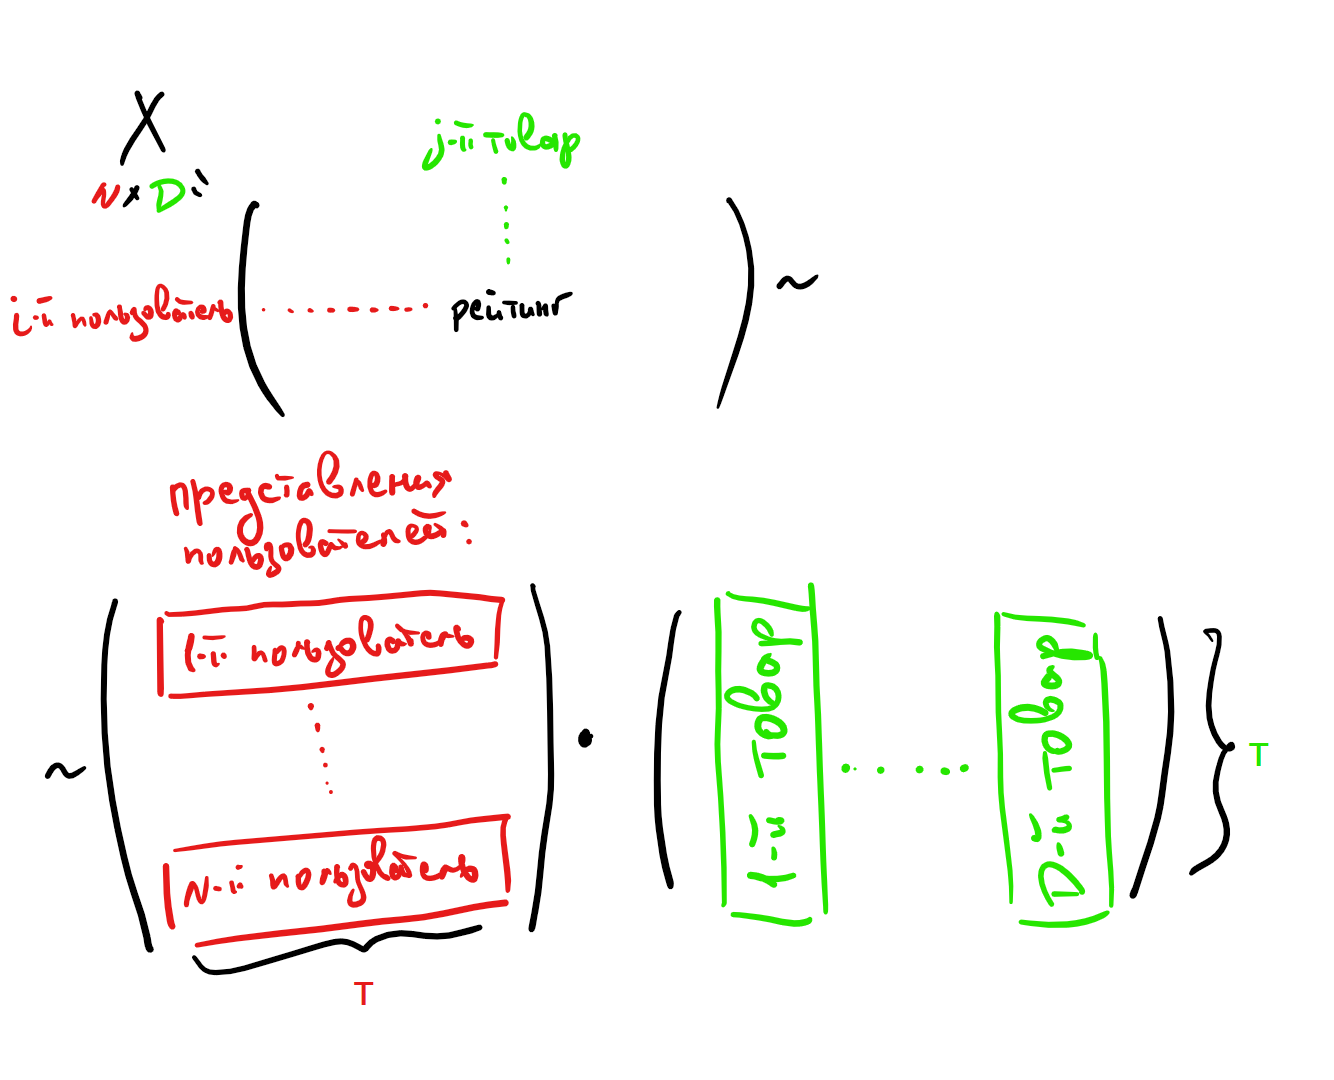 X
N × D :
j-й товар
i-й пользователь рейтинг ~
представления
пользователей:
1-й пользователь
~
N-й пользователь
T
1-й товар
D-й товар
T